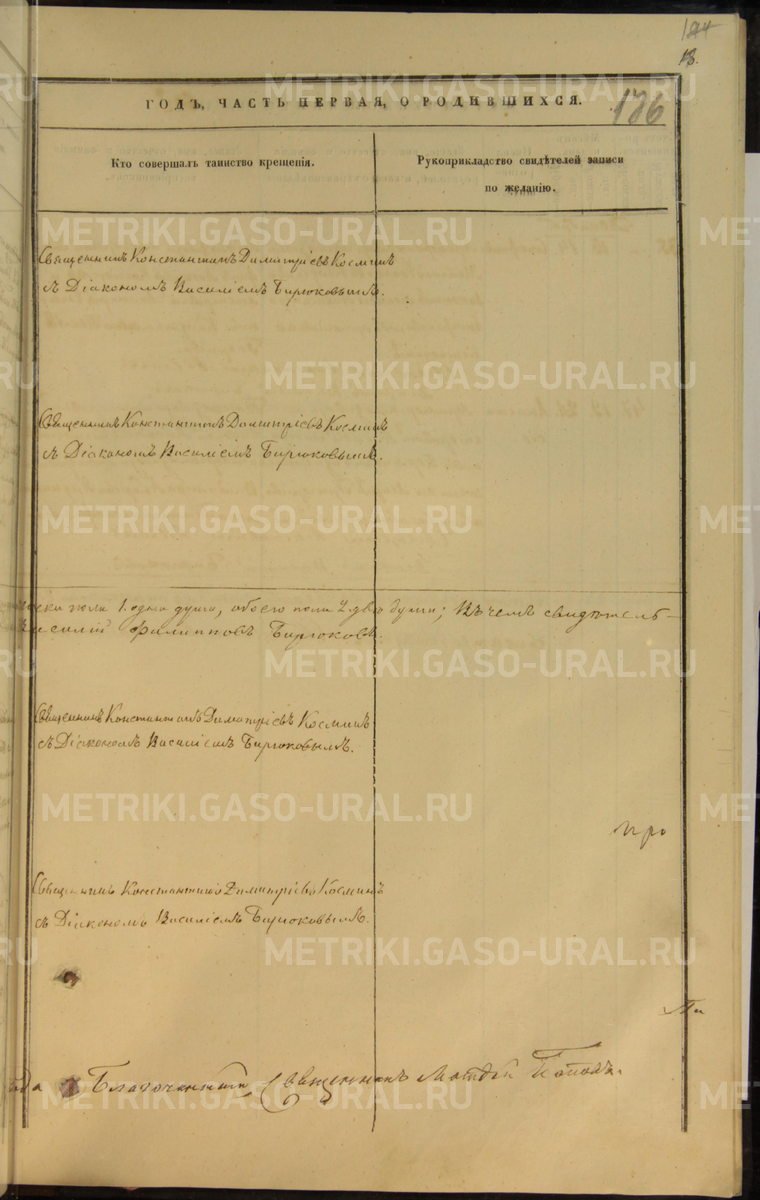 144
18.
ГОДЪ, ЧАСТЬ ПЕРВАЯ, О РОДИВШИХСЯ.
136
Кто совершалъ таинство крещенія.
Рукоприкладство свидѣтелей записи
по желанію.
Священникъ Константинъ Димитріевъ Космин
съ Діакономъ Василіемъ Бирюковымъ.
Священникъ Константинъ Димитріевъ Космин
съ Діакономъ Василіемъ Бирюковымъ.
пола 1. одна душа, обоего пола 2. двѣ души; Въ чемъ свидѣтель-
Василій Филипповъ Бирюковъ.
Священникъ Константинъ Димитріевъ Космин
съ Діакономъ Василіемъ Бирюковымъ.
про
Священникъ Константинъ Димитріевъ Космин
съ Діакономъ Василіемъ Бирюковымъ.
Благочинный Священникъ Матѳей Поповъ.
METRIKI.GASO-URAL.RU